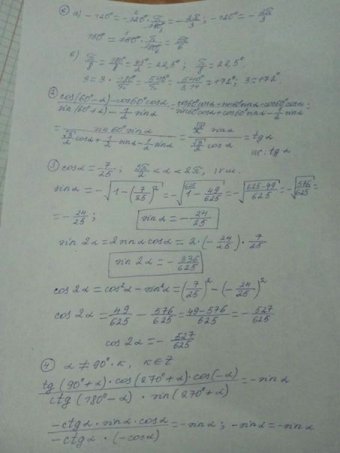 а) -120° = -120° · π/180° = -2π/3; -120° = -2π/3
180° = π/
б) π/8 = 180°/8 = 22,5°; π/8 = 22,5°
3 = 3 · 180°/π = 540°/π = 540°/3,14 = 172°; 3 = 172°
② cos(60°-α) - cos60°cosα
sin(60°+α) - 1/2 sinα
= sin60°sinα / (√3/2 cosα + 1/2 sinα - 1/2 sinα) = √3/2 sinα / √3/2 cosα = tgα
③ cosα = 7/25; 3π/2 < α < 2π,
sinα = -√(1-(7/25)²) = -√(1 - 49/625) = -√((625-49)/625) = -√(576/625) =
= -24/25; sinα = -24/25
sin 2α = 2 sinα cosα = 2 · (-24/25) · 7/25
sin 2α = -336/625
cos 2α = cos²α - sin²α = (7/25)² - (-24/25)²
cos 2α = 49/625 - 576/625 = (49-576)/625 = -527/625
cos 2α = -527/625
④ α ≠ 90° · к, к∈Z
tg(90°+α) · cos(270°+α) · cos(-α) / ctg(180°-α) · sin(270°+α) = -sinα
-ctgα · sinα · cosα / -ctgα · (-cosα) = -sinα; -sinα = -sinα